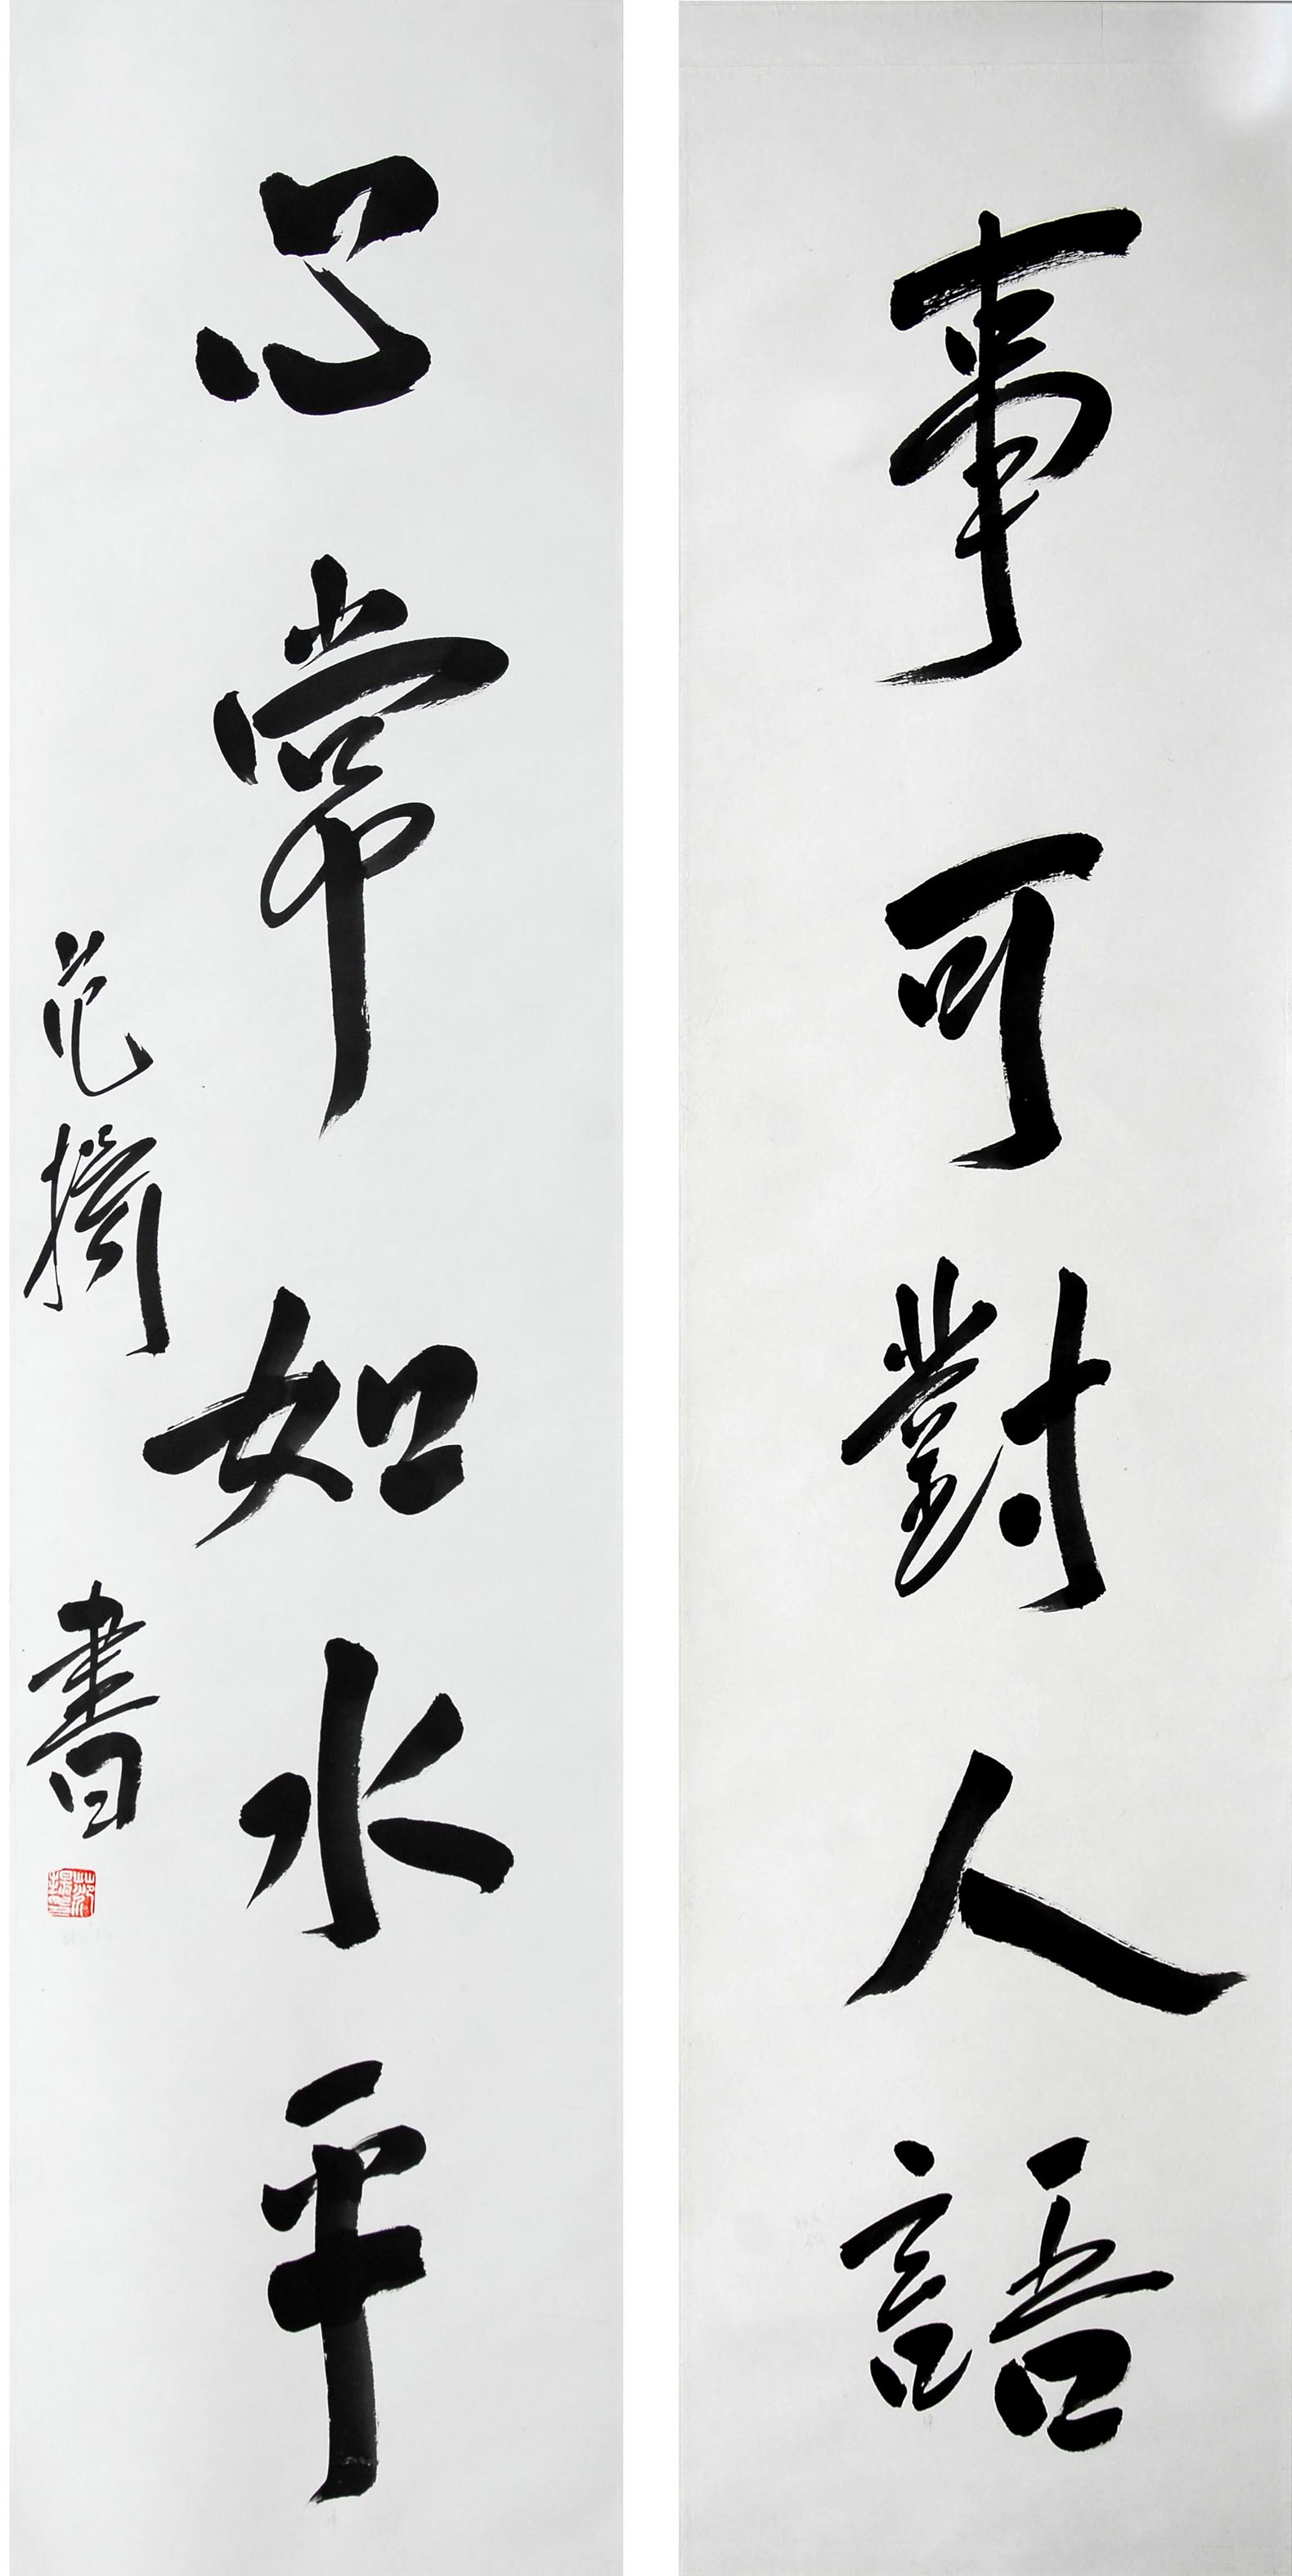 事可對人語
心常如水平
范擣書